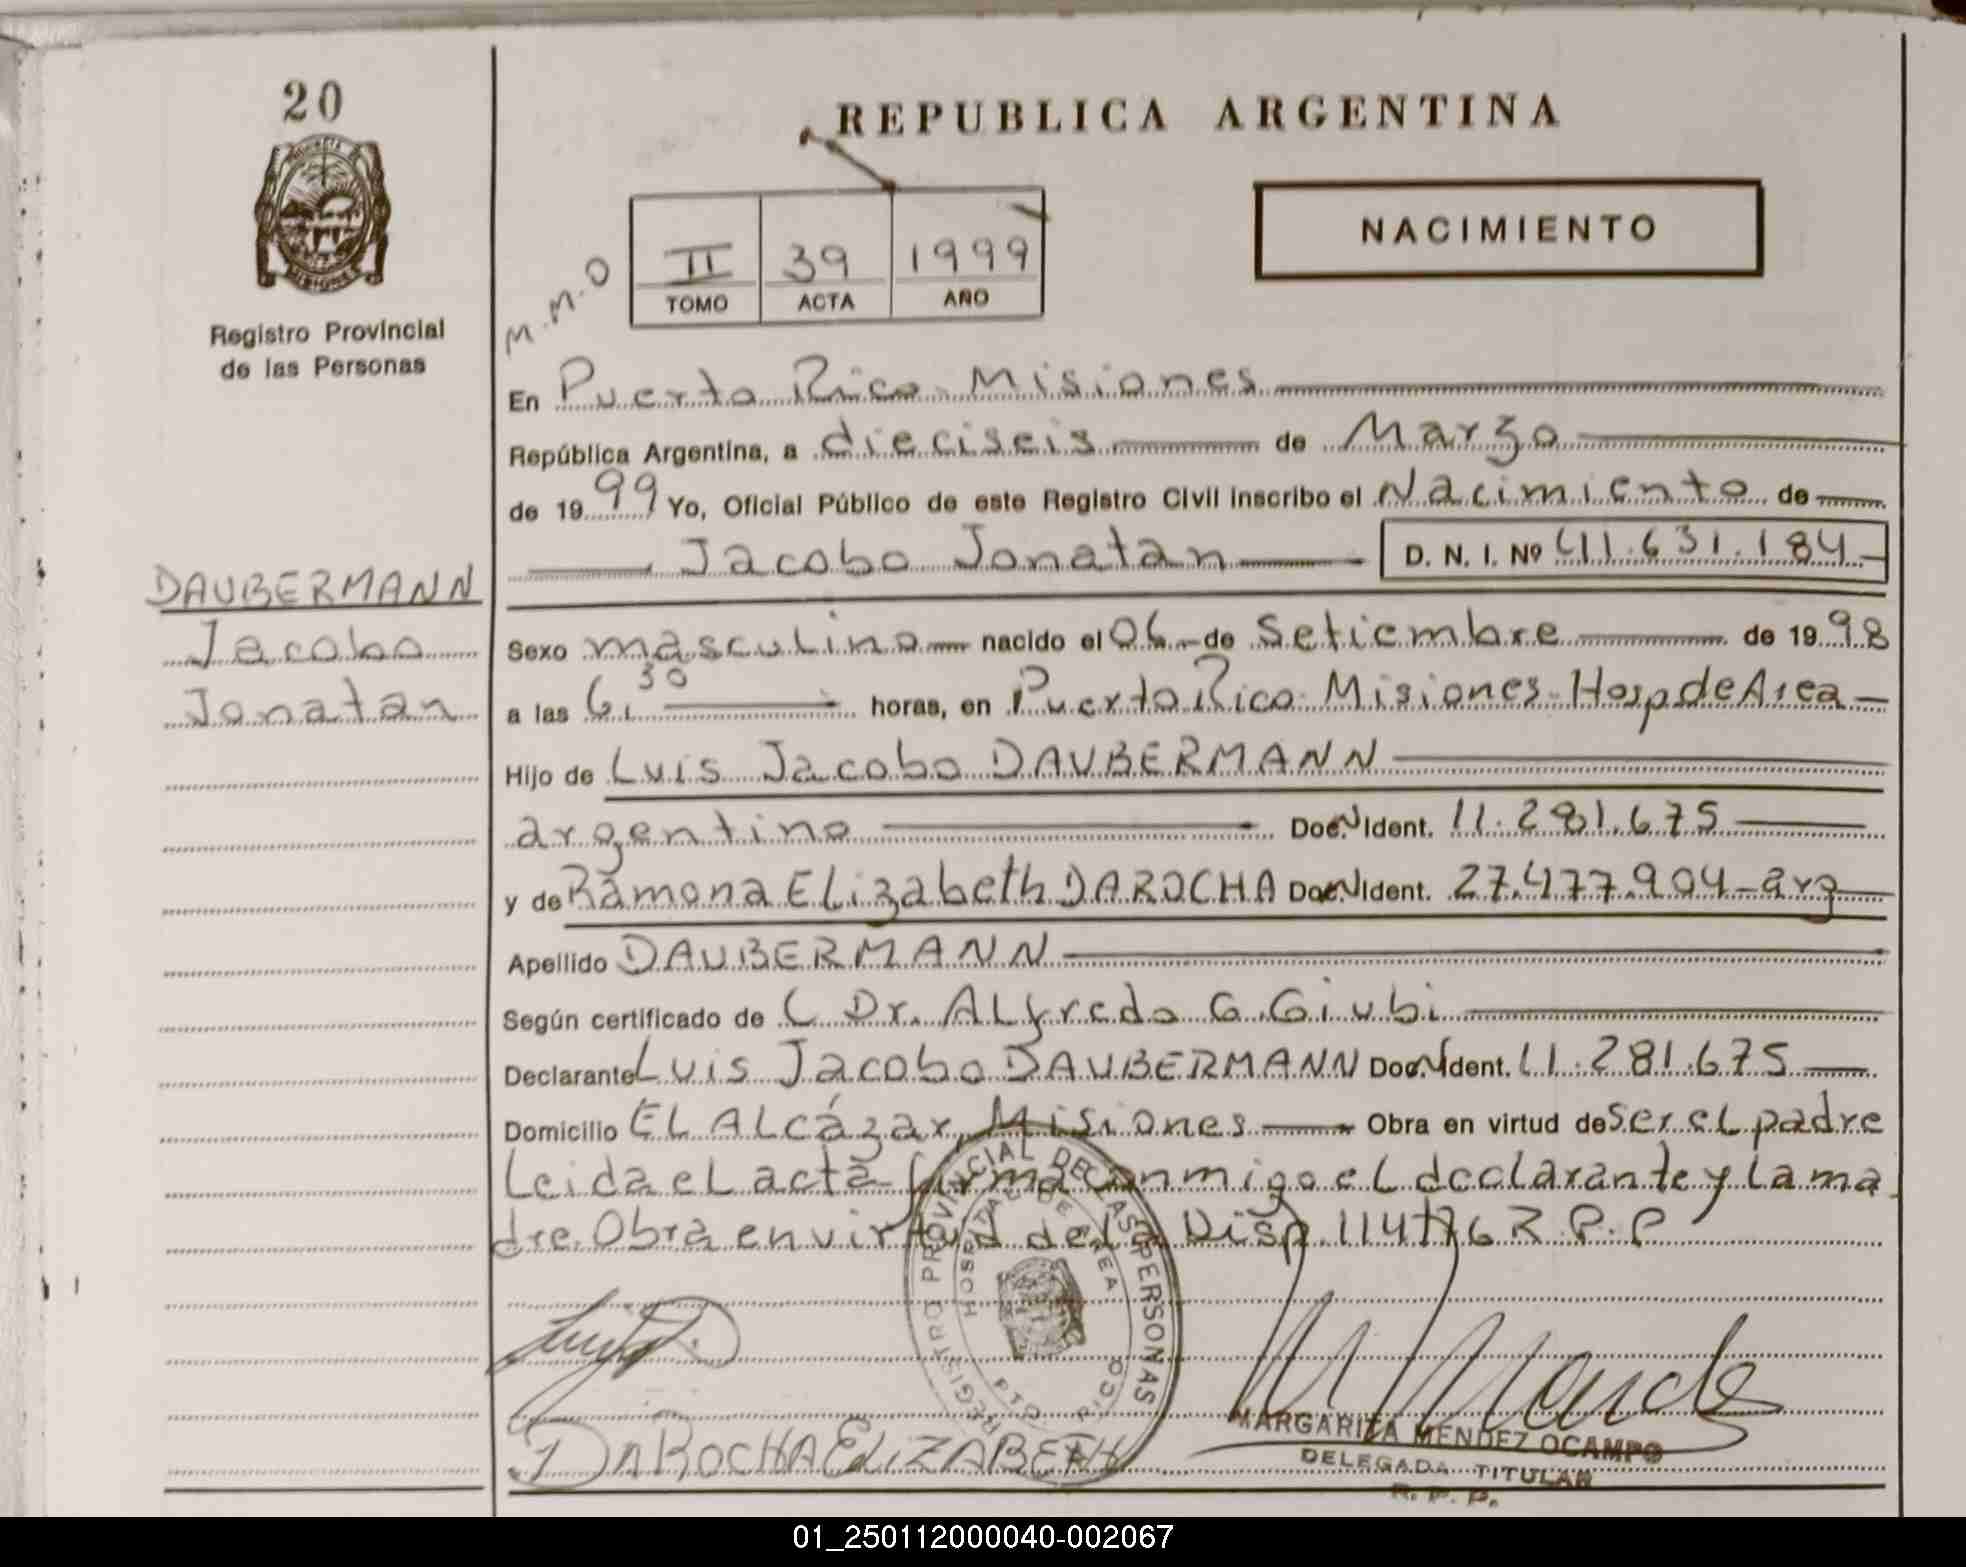 20
REPUBLICA ARGENTINA
PROVINCIA DE MISIONES
Registro Provincial
de las Personas
NACIMIENTO
M.M.O
II 39 1999
TOMO ACTA AÑO
En Puerto Rico - Misiones
República Argentina, a dieciseis de Marzo
de 1999 Yo, Oficial Público de este Registro Civil inscribo el Nacimiento de
Jacobo Jonatan D. N. I. Nº 41.631.184
DAUBERMANN
Jacobo
Jonatan
Sexo masculino nacido el 06 de Setiembre de 1998
a las 6,30 horas, en Puerto Rico - Misiones - Hosp de Area
Hijo de Luis Jacobo DAUBERMANN
argentino Doc. N Ident. 11.281.675
y de Ramona Elizabeth DAROCHA Doc. N Ident. 27.477.904 - arg
Apellido DAUBERMANN
Según certificado de C Dr. Alfredo G. Giubi
Declarante Luis Jacobo DAUBERMANN Doc. N Ident. 11.281.675
Domicilio El Alcázar, Misiones Obra en virtud de ser el padre
Leida el acta firma conmigo el declarante y la ma
dre. Obra en virtud de la Disp. 114/76 R.P.P
REGISTRO PROVINCIAL DE LAS PERSONAS
HOSPITAL DE AREA
PTO RICO
DAROCHA ELIZABETH
MARGARITA MENDEZ OCAMPO
DELEGADA TITULAR
R. P. P.
01_250112000040-002067